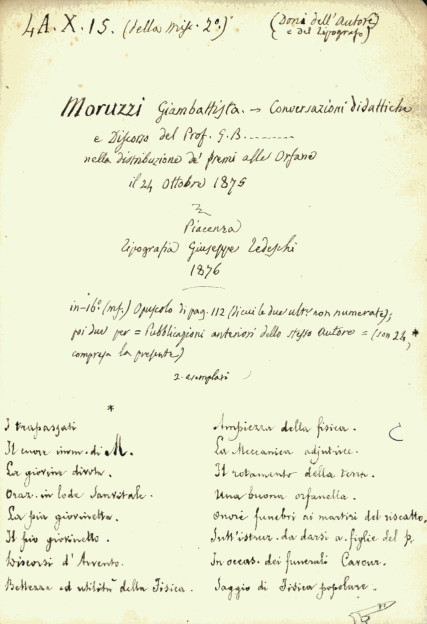 4A. X. 15. (della Misc. 2ª.)
(Doni dell'Autore
e del Tipografo)
Moruzzi Giambattista. → Conversazioni didattiche
e Discorso del Prof. G. B. ........
nella distribuzione de' premi alle Orfane
il 24 Ottobre 1875
Piacenza
Tipografia Giuseppe Tedeschi
1876
in-16º (mf.) Opuscolo di pag. 112 (di cui le due ult. non numerate);
poi due per = Pubblicazioni anteriori dello stesso Autore = (son 24, *
compresa la presente)
2. esemplari
*
I trapassati
Il cuore imm. di M.
La giovine divota.
Oraz. in lode Sanvitale.
La pia giovinetta.
Il pio giovinetto.
Discorsi d'Avvento.
Bellezza ed utilità della Fisica.
Ampiezza della fisica.
La Meccanica adjutrice.
Il rotamento della terra.
Una buona orfanella.
Onori funebri ai martiri del riscatto.
da darsi a figlie del p.
In occas. dei funerali Cavour.
Saggio di Fisica popolare.